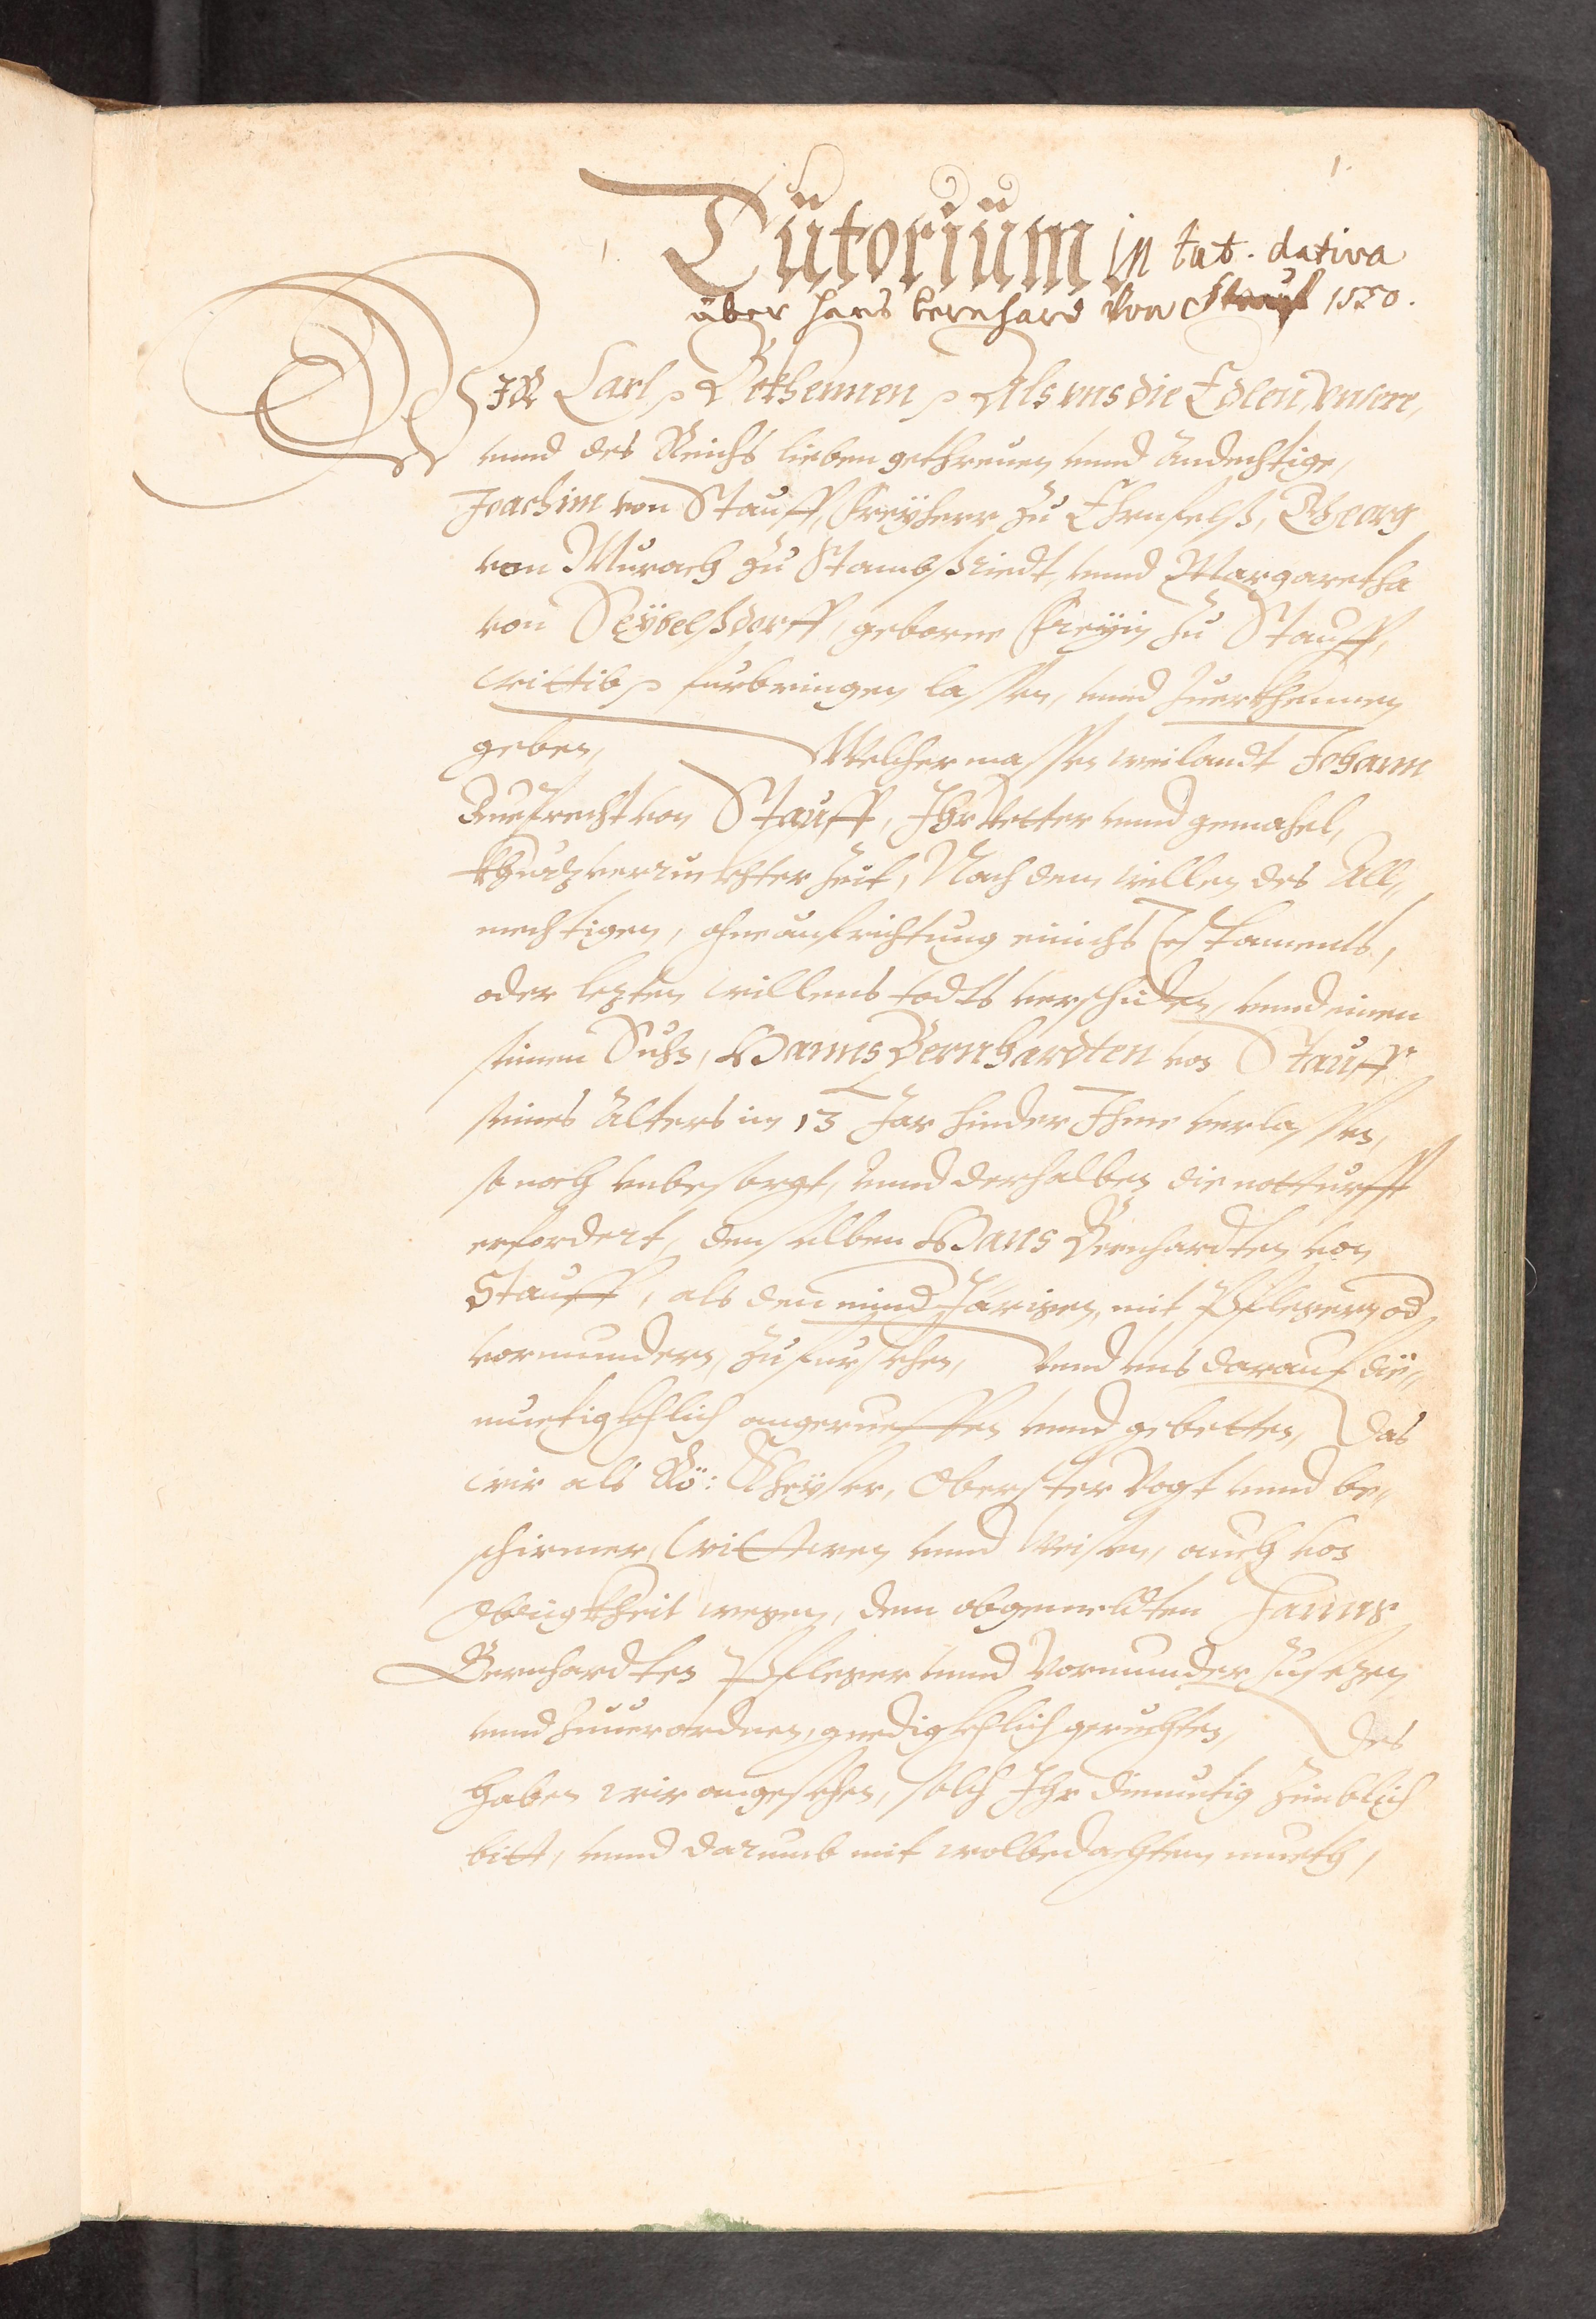 1.
1. Tütoriüm in tut. dativa
über hans bernhard von Stauf 1550.
WIR Carl p Bekhennen p Als vns die Edlen, Vnsere,
vnnd des Reichs lieben gethreuen vnnd Andechtige,
Joachim von Stauff, Freyherr zu Ehrnfelß, Georg
von Murach zu Stambßriedt, vnnd Margaretha
von Seÿbelßdorff, geborne Freÿin zu Stauff,
wittib p furbringen lassen, vnnd zuerkhennen
geben, Welchermassen weilandt Johann
Ruoprecht von Stauff, Ihr Vetter vnnd gemahel,
khurzverruckhter Zeit, Nach dem willen des All„
mechtigen, ohne aufrichtung einichs Testaments,
oder lezten willens todts verschiden, vnnd einen
seinen Suhn, Hanns Bernhardten von Stauff
seines Alters im 13 Jar hinder Ihme verlassen,
so noch vnbesorgt, vnnd derhalben die notturfft
erfordert, denselben Hans Bernhardten von
Stauff, als den mindJärigen, mit Pflegern od
vormundern, zufursehen, vnnd vns darauf die„
muetigkhlich angerueffen vnnd gebetten, Das
wir als Rö: Kheyser, Oberster Vogt vnnd be„
schirmer, Wittwen vnnd Weisen, auch von
Obrigkheit wegen, dem obgemeldten Hanns
Bernhardten Pfleger vnnd Vormunder zusezen
vnnd zuuerordnen, gnedigkhlich geruehten, Des
haben wir angesehen, solch Ihr diemuetig zimblich
bitt, vnnd darumb mit wolbedachtem mueth,